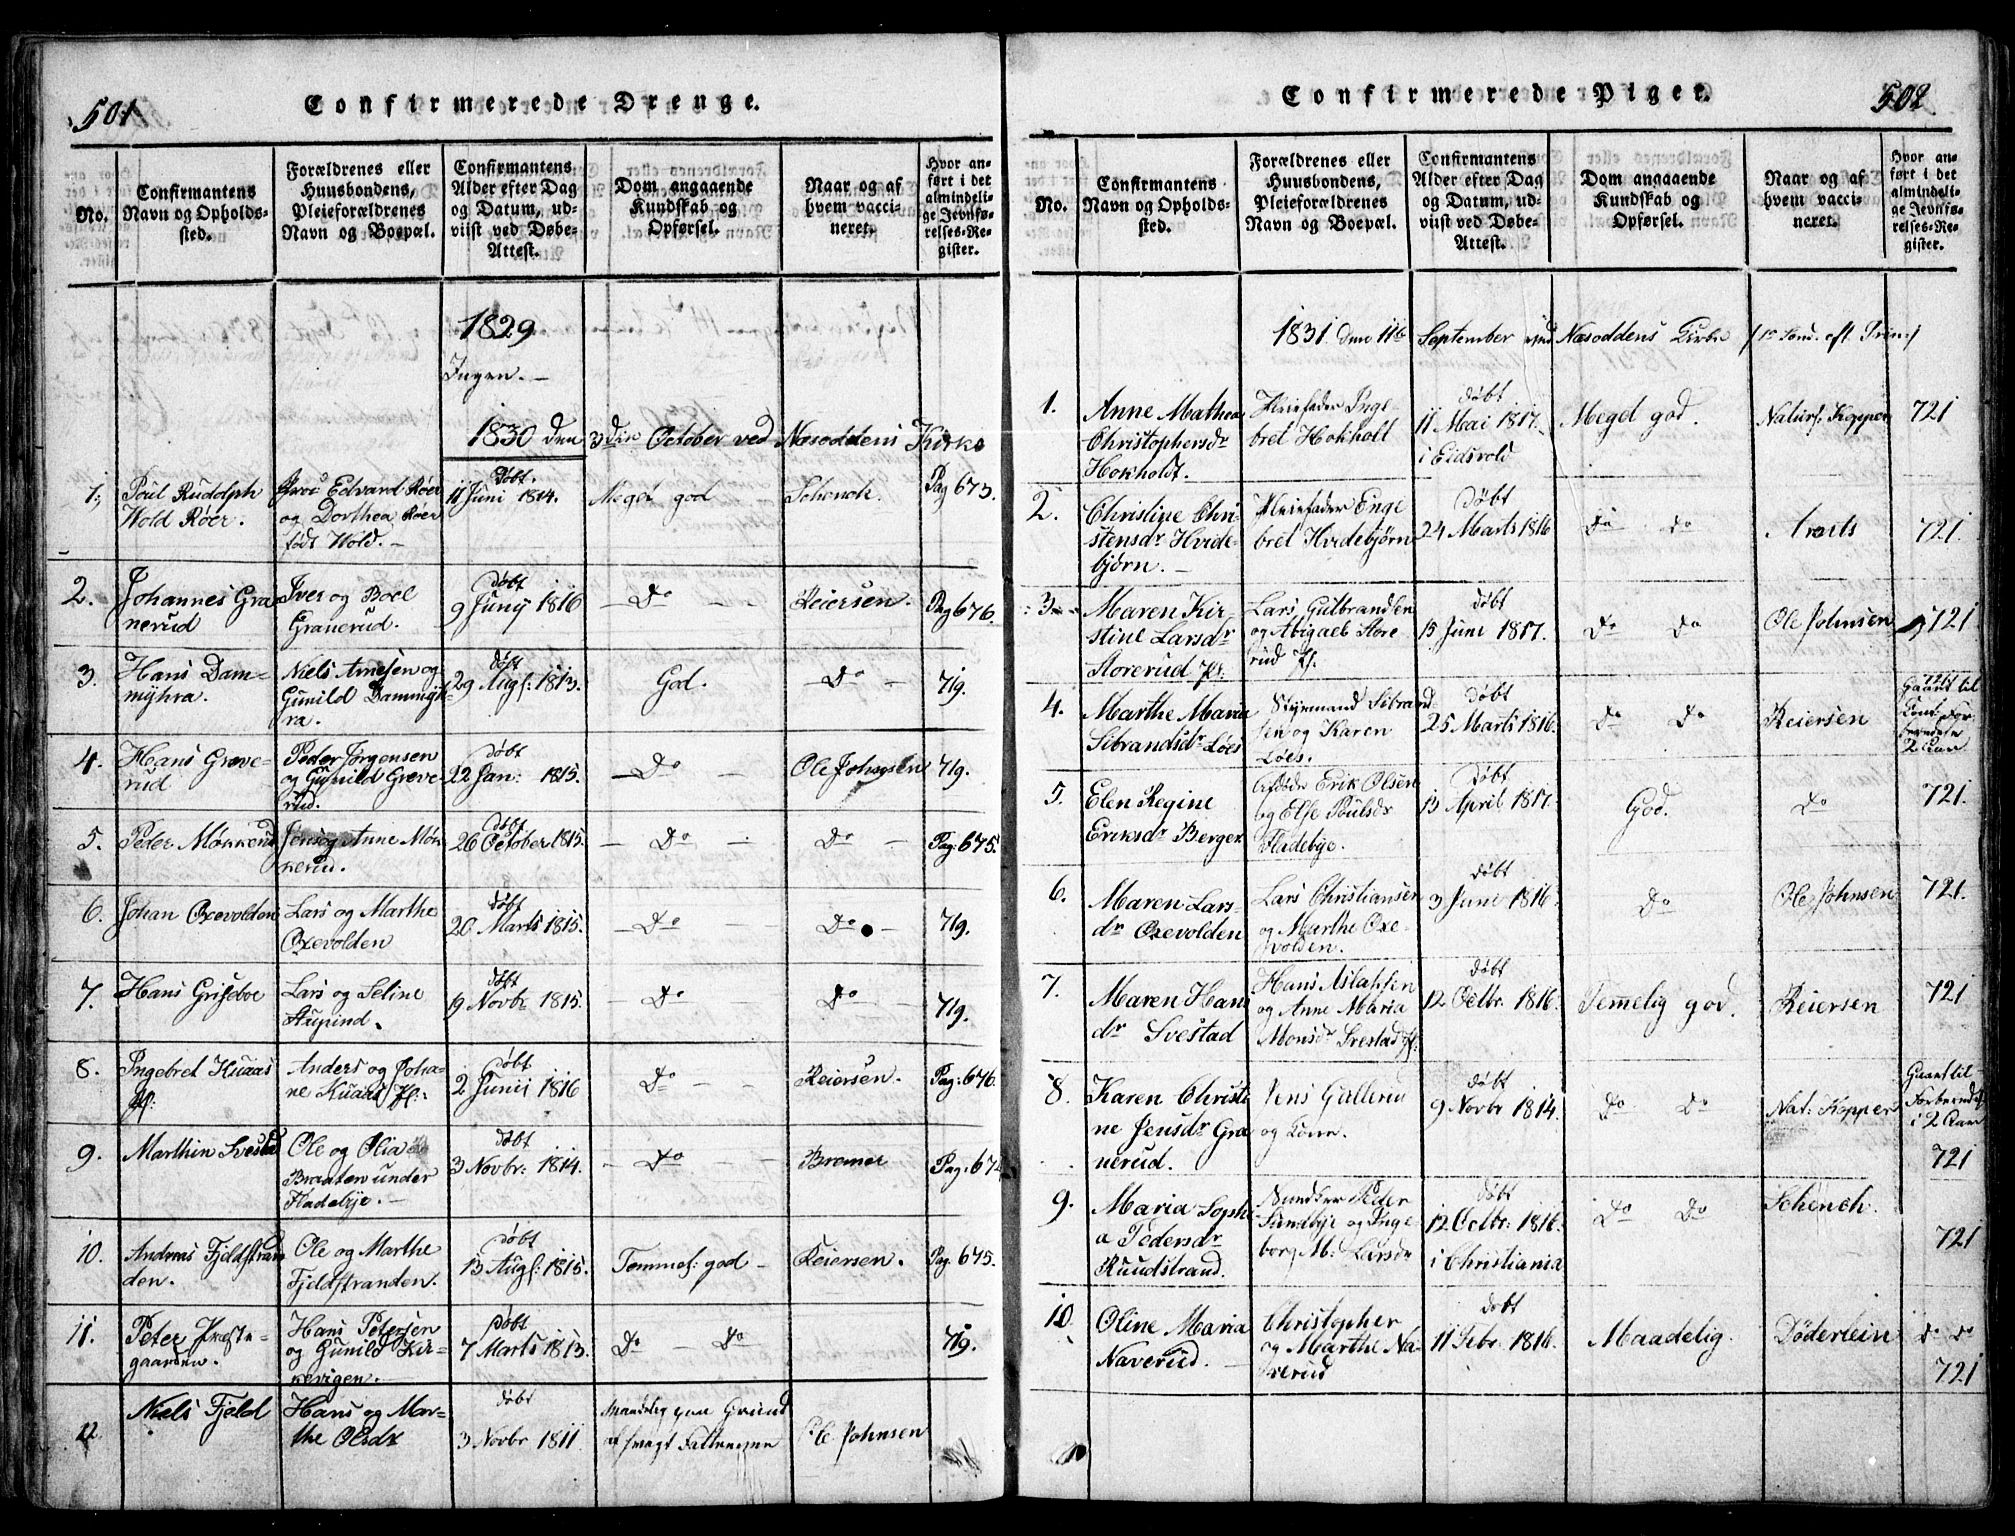 501
Confirmerede Drenge.
No.
Confirmantens
Navn og Opholds-
sted.
Forældrenes eller
Huusbondens,
Pleieforældrenes
Navn og Boepæl.
Confirmantens
Alder efter Dag
og Datum, ud-
viist ved Døbe-
Attest.
Dom angaaende
Kundskab og
Opførsel.
Naar og af
hvem vacci-
neret.
Hvor an-
ført i det
almindeli-
ge Jevnfø-
relses-Re-
gister.
1829
Ingen.
1830 den 3die October ved Næsoddens Kirke
1.
Poul Rudolph
Wold Røer.
Edvard Røer
og Dorthea Røer
født Wold.
Døbt.
11 Juni 1814.
Meget god
Schenck.
Pag 673.
2.
Johannes Gra
nerud
Iver og Boel
Granerud.
døbt
9 Junij 1816
Do
Reiersen.
Pag 676.
3.
Hans Dam-
myhra.
Niels Arnesen og
Gunild Dammyh-
ra.
døbt
29 Augs: 1813.
God.
Do
719.
4.
Hans Greve-
rud
Peder Jørgensen
og Gunild Greve-
rud.
døbt
22 Jan: 1815.
Do
Ole Johnsen
719.
5.
Peder Mønnerud
Jens og Anne Møn-
nerud.
døbt
26 October 1815.
Do
Do
Pag: 675.
6.
Johan Oxevolden
Lars og Marthe
Oxevolden
døbt
20 Marts 1815.
Do
Do
719.
7.
Hans Griseboe
Lars og Seline
døbt
19 Novbr 1815.
Do
Do
719.
8.
Ingebret Kuaas
Pl:
Anders og Joha-
ne Kuaas Pl:
døbt
2 Junii 1816
Do
Reiersen.
Pag: 676.
9.
Marthin Svestad
Ole og Olia
Braaten under
Fladebye.
døbt
3 Novbr: 1814.
Do
Bremer
Pag: 674
10.
Andreas Fjeldstran
den.
Ole og Marthe
Fjeldstranden.
døbt
13 Augs: 1815.
Temmel: god
Reiersen.
Pag. 675.
11.
Peter Præste-
gaarden.
Hans Petersen
og Gunild Kir-
kevigen.
døbt
7 Marts 1813.
Do Do
719.
12
Niels Fjeld
Hans og Mar-
the Olsdr
døbt
3 Novbr 1811.
Maadelig
af svagt Fatteevne
Ole Johnsen
502
Confirmerede Piger.
No.
Confirmantens
Navn og Opholds-
sted.
Forældrenes eller
Huusbondens,
Pleieforældrenes
Navn og Boepæl.
Confirmantens
Alder efter Dag
og Datum, ud-
viist ved Døbe-
Attest.
Dom angaaende
Kundskab og
Opførsel.
Naar og af
hvem vacci-
neret.
Hvor an-
ført i det
almindeli-
ge Jevnfø-
relses-Re-
gister.
1831 den 11te September ved Næsoddens Kirke Sønd. eft. Trin:/
1.
Anne Mathea
Christophersdr
Hokholdt.
Pleiefader Inge-
bret Hokholt
døbt
11 Mai 1817.
i Eidsvold
Meget god.
Naturl: Kopper
721
2.
Christine Chri-
stensdr Hvide-
bjørn.
Pleiefader Enge
bret Hvidebjørn
døbt
24 Marts 1816
Do Do
Arents
721.
3.
Maren Kir-
stine Larsdr
Storerud Pl:
Lars Gulbrandsen
og Abigael Store
rud Pl.
døbt
15 Juni 1817.
Do Do
Ole Johnsen
721.
4.
Marthe Maria
Sibrandsdr Løes
Styrmand Sibrand
sen og Karen
Løes.
døbt
25 Marts 1816.
Do Do
Reiersen
721
Gaaet til
2 Aar
5.
Elen Regine
Eriksdr Berger
Afdøde Erik Olsen
og Else Poulsdr
Fladebye.
døbt
13 April 1817.
God.
Do
721.
6.
Maren Lars-
dr Oxevolden
Lars Christiansen
og Marthe Oxe-
volden.
døbt
3 Juni 1816.
Do
Ole Johnsen
721.
7.
Maren Hans
dr Svestad
Hans Aslaksen
og Anne Maria
Monsdr Svestad Pl:
døbt
12 Octbr. 1816.
Temelig god.
Reiersen
721
8.
Karen Christi
ne Jensdr Gra
nerud.
Jens Gullerud
og Kone.
døbt
9 Novbr 1814.
Do Do
Nat: Kopper
Gaaet til
Forberedelse
i 2 Aar
721
9.
Maria Sophi
a Pedersdr
Ruudstrand.
Peder
Sundbye og Inge
borg M: Larsdr
døbt
12 Octbr: 1816.
i Christiania
Do Do
Schench.
721
10
Oline Maria
Naverud.
Christopher
og Marthe Na-
verud
døbt
11 Febr: 1816.
Maadelig.
Døderlein
Do Do
721